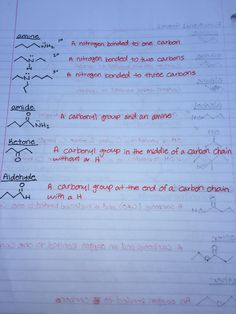 amine
NH₂ 1° A nitrogen bonded to one carbon
N H 2° A nitrogen bonded to two carbons
N 3° A nitrogen bonded to three carbons
amide
O NH₂ A carbonyl group and an amine
Ketone
O A carbonyl group in the middle of a carbon chain
without a H
Aldehyde
O H A carbonyl group at the end of a carbon chain
with a H